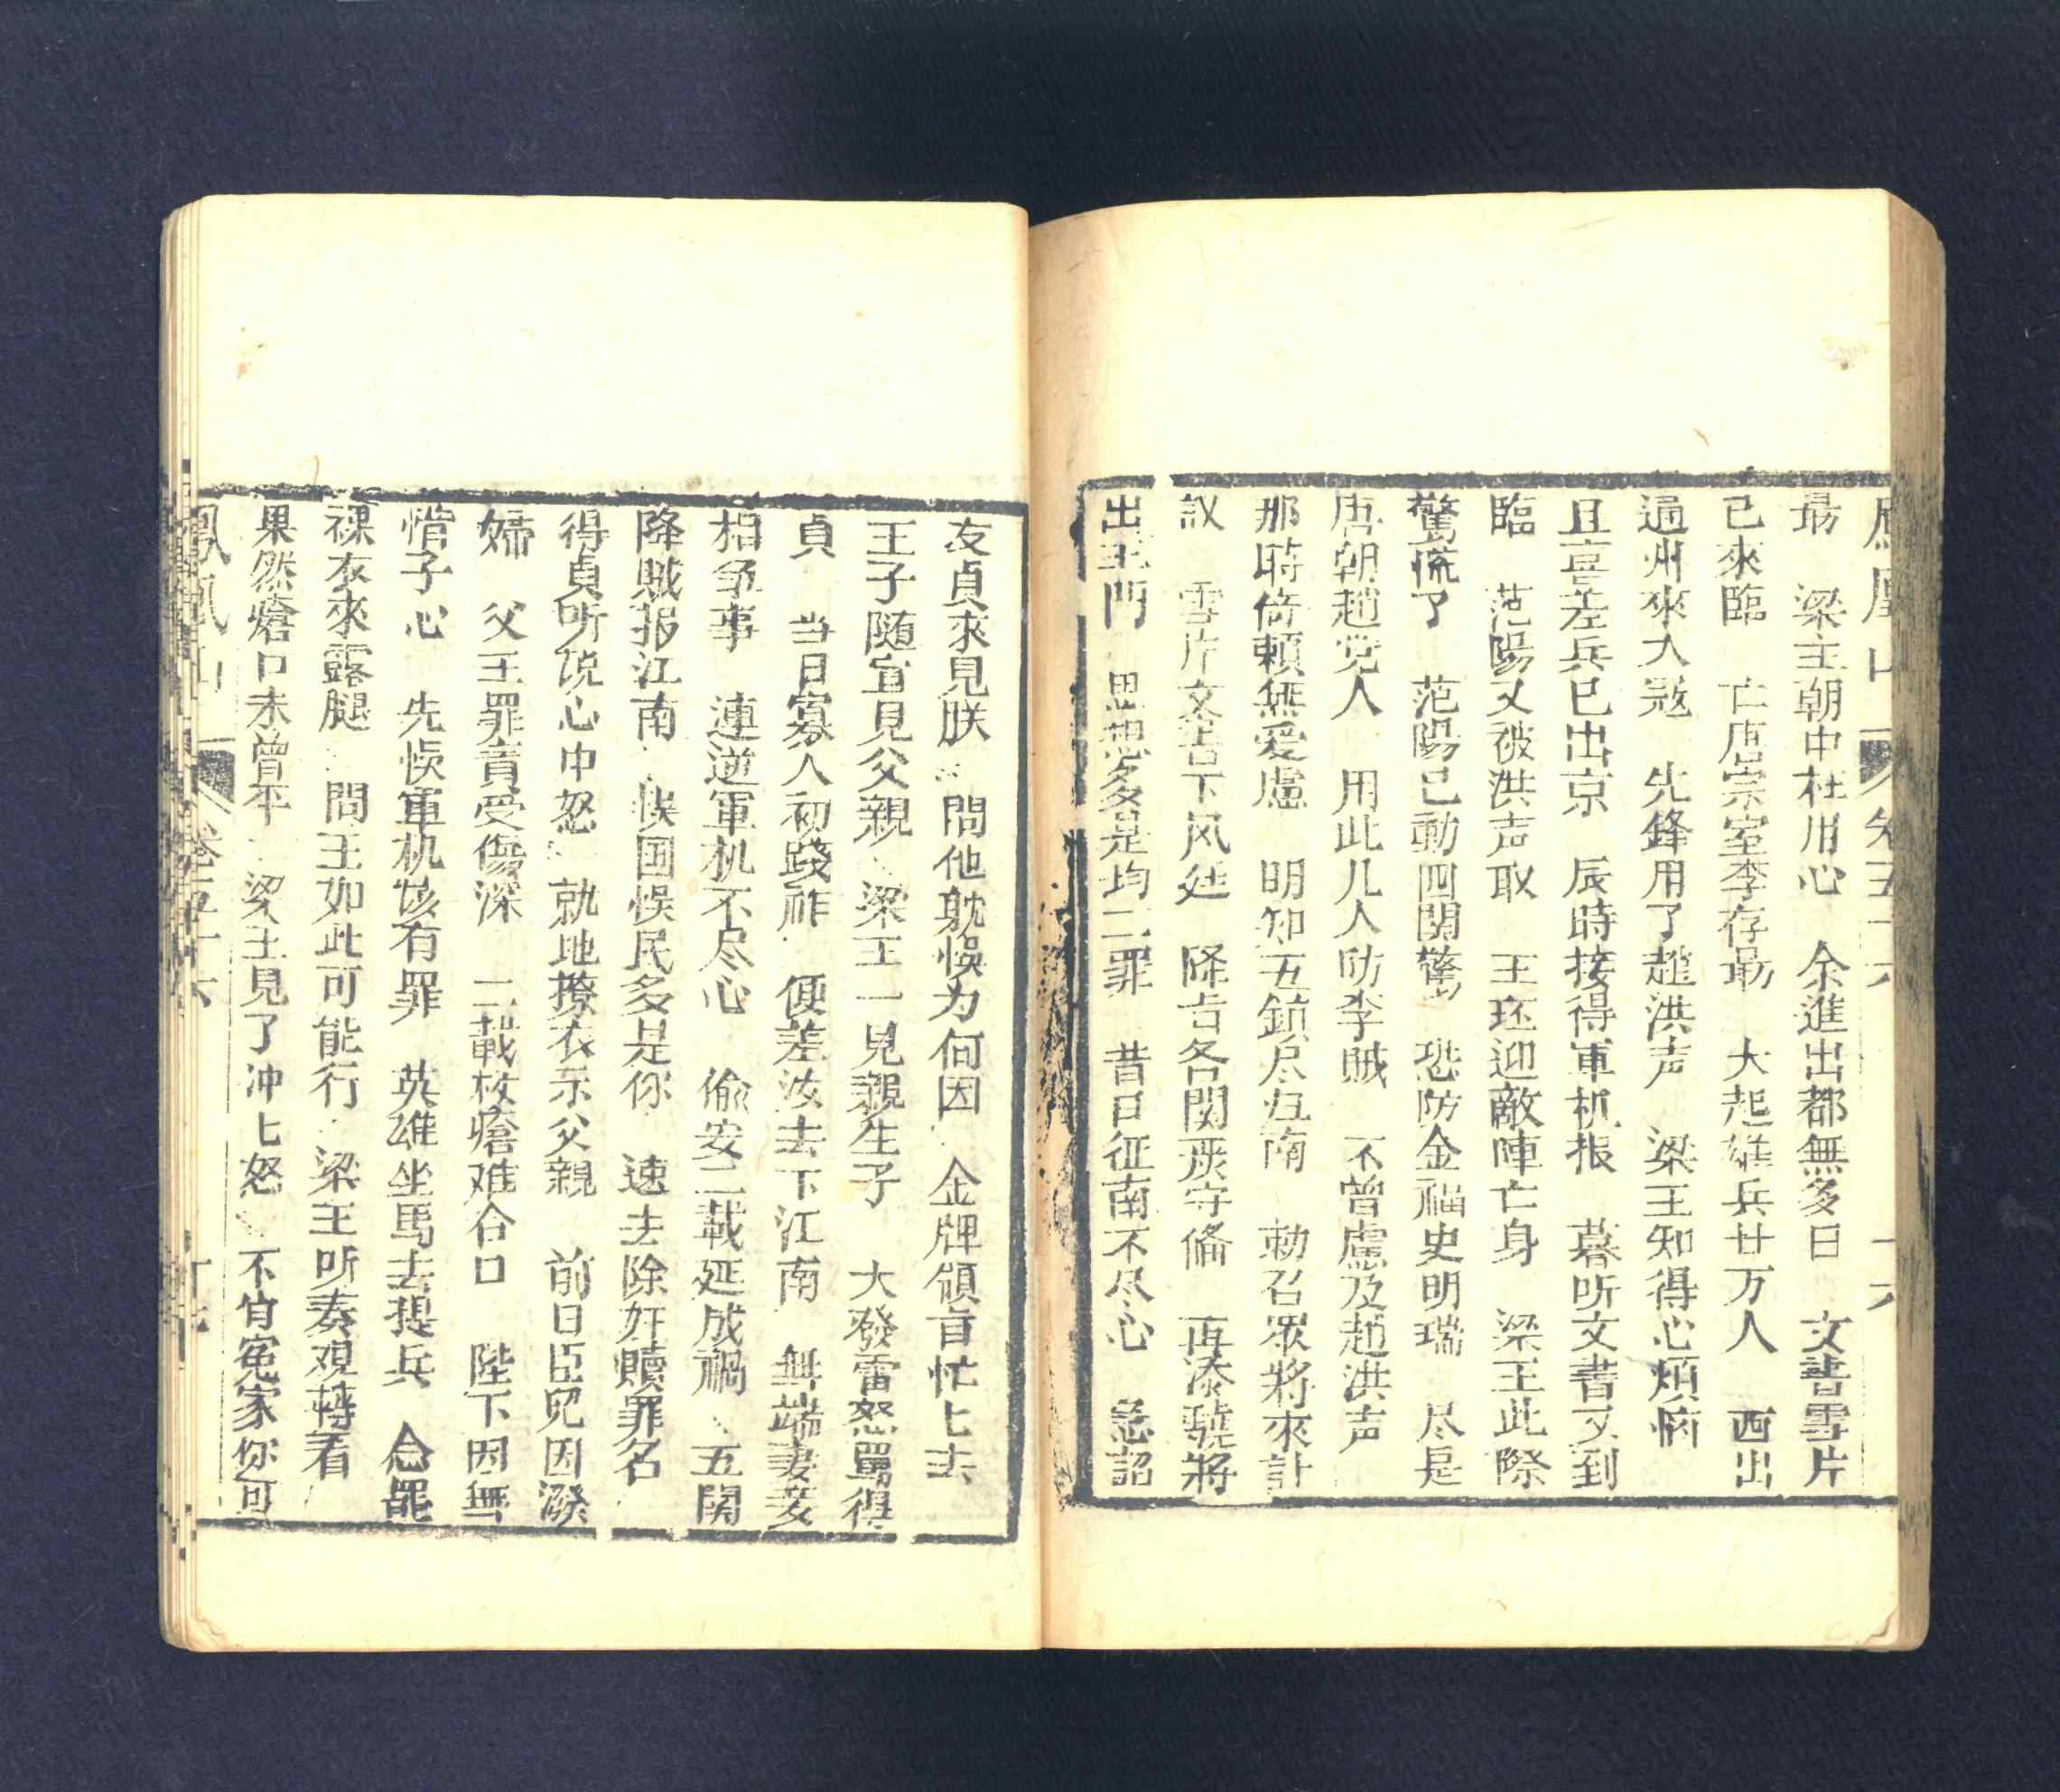 鳳凰山 卷五十六 十六
最 梁主朝中枉用心 余進出都無多日 文書雪片
已來臨 亡唐宗室李存最 大起雄兵廿万人 西出
通州來大寇 先鋒用了趙洪声 梁王知得心煩惱
且喜差兵已出京 辰時接得軍机报 暮听文書又到
臨 范陽又被洪声取 王珽迎敵陣亡身 梁王此際
驚慌了 范陽已動四関驚 恐防金福史明瑞 尽是
唐朝趙党人 用此几人防李賊 不曾慮及趙洪声
那時倚賴無爱慮 明知五鎮尽江南 勅召眾將來計
議 雪片文書下风廷 降旨各関严守俻 再添驍將
出玉門 思想多是均二罪 昔日征南不尽心 急詔
友貞來見朕 問他躭悞为何因 金牌領旨忙七去
王子随宣見父親 梁王一見親生子 大發雷怒罵得
貞 当日寡人初踐祚 便差汝去下江南 無端妻妾
相争事 連逆軍机不尽心 偷安二載延成禍 五関
降賊报江南 悞国悞民多是你 速去除奸贖罪名
得貞听说心中怒 就地撩衣示父親 前日臣児因潑
婦 父王罪責受傷深 二載杖瘡难合口 陛下因無
惜子心 先悞軍机该有罪 英雄坐馬去提兵 念罷
裸衣來露腿 問王如此可能行 梁王听奏观轉看
果然瘡口未曾平 梁王見了冲七怒 不肖冤家你可
鳳凰山 卷五十六 十七